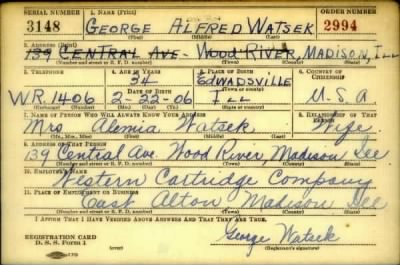 SERIAL NUMBER 1. NAME (Print) ORDER NUMBER
3148 GEORGE ALFRED WATSEK 2994
(First) (Middle) (Last)
2. ADDRESS (Print)
139 CENTRAL AVE. WOOD RIVER, MADISON, ILL
(Number and street or R. F. D. number) (Town) (County) (State)
3. TELEPHONE 4. AGE IN YEARS 5. PLACE OF BIRTH 6. COUNTRY OF CITIZENSHIP
34 EDWADSVILLE
DATE OF BIRTH
W.R. 1406 2-22-06 ILL U.S.A
7. NAME OF PERSON WHO WILL ALWAYS KNOW YOUR ADDRESS 8. RELATIONSHIP OF THAT PERSON
Mrs Watsek Wife
(Mr., Mrs., Miss) (First) (Middle) (Last)
9. ADDRESS OF THAT PERSON
139 Central Ave. Wood River, Madison Ill
(Number and street or R. F. D. number) (Town) (County) (State)
10. EMPLOYER'S NAME
Western Cartridge Company
11. PLACE OF EMPLOYMENT OR BUSINESS
East Alton Madison Ill
(Number and street or R. F. D. number) (Town) (County) (State)
I AFFIRM THAT I HAVE VERIFIED ABOVE ANSWERS AND THAT THEY ARE TRUE.
REGISTRATION CARD
D. S. S. Form 1
George Watsek
(Registrant's signature)